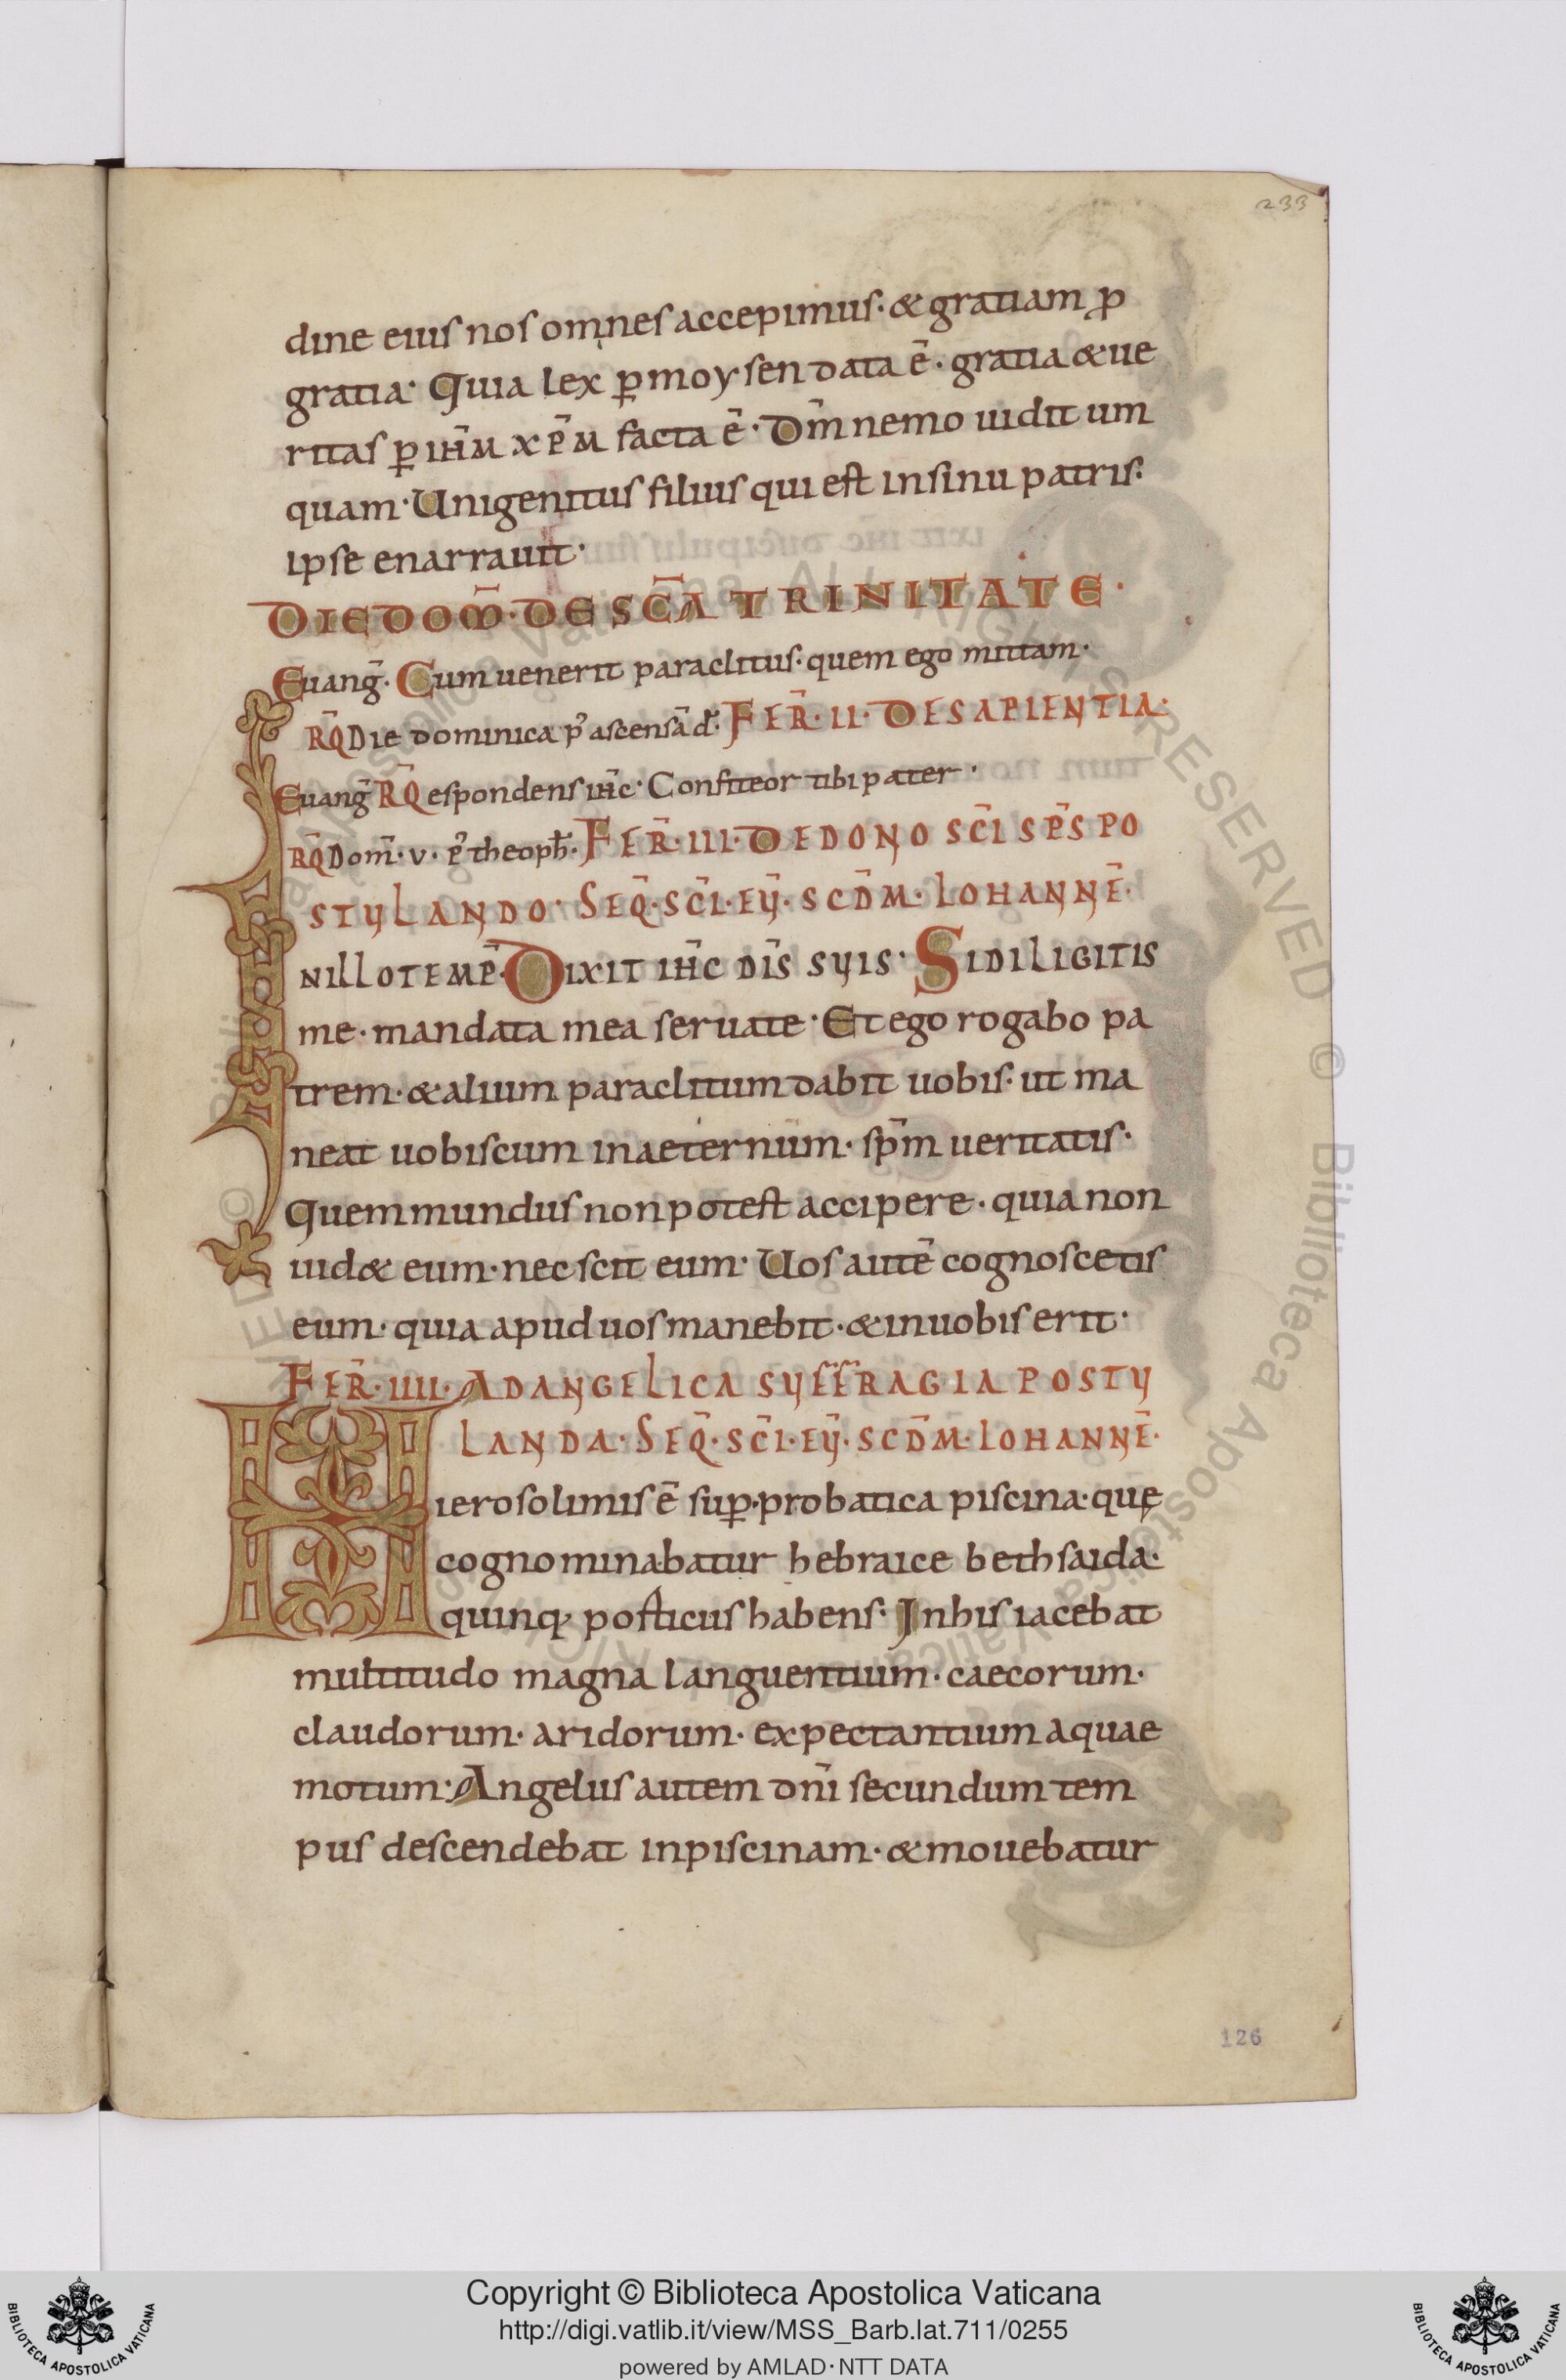 233
dine eius nos omnes accepimus· & gratiam ꝓ
gratia· Quia lex ꝑ moysen data ē· gratia & ue
ritas ꝑ ihm̄ xpm̄ facta ē· Dm̄ nemo uidit um
quam· Unigenitus filius qui est in sinu patris·
ipse enarrauit·
DIE DOM̄· DE SC̄A TRINITATE·
Euanḡ· Cum uenerit paraclitus· quem ego mittam·
RQ̄ Die dominica p' ascensā d̄· FER̄· II· DE SAPIENTIA·
Euanḡ RQ̄ espondens ihc̄· Confiteor tibi pater·
RQ̄ Dom̄· v· p' theoph̄· FER̄· III· DE DONO SC̄I SP̄S PO
STULANDO· SEQ̄· SC̄I· EŪ· SCD̄M· IOHANNĒ·
IN ILLO TEMP̄· DIXIT IHC̄ DIS̄ SUIS· SI DILIGITIS
me· mandata mea seruate· Et ego rogabo pa
trem· & alium paraclitum dabit uobis· ut ma
neat uobiscum in aeternum· spm̄ ueritatis·
Quem mundus non potest accipere· quia non
uid& eum· nec scit eum· Uos autē cognoscetis
eum· quia apud uos manebit· & in uobis erit·
FER̄· IIII· AD ANGELICA SUFFRAGIA POSTU
LANDA· SEQ̄· SC̄I· EŪ· SCD̄M· IOHANNĒ·
Hierosolimis ē suꝑ· probatica piscina· quę
cognominabatur hebraice bethsaida·
quinq; porticus habens· In his iacebat
multitudo magna languentium· caecorum·
claudorum· aridorum· expectantium aquae
motum· Angelus autem dnī secundum tem
pus descendebat in piscinam· & mouebatur
126
Copyright © Biblioteca Apostolica Vaticana
http://digi.vatlib.it/view/MSS_Barb.lat.711/0255
powered by AMLAD·NTT DATA
BIBLIOTECA APOSTOLICA VATICANA
BIBLIOTECA APOSTOLICA VATICANA